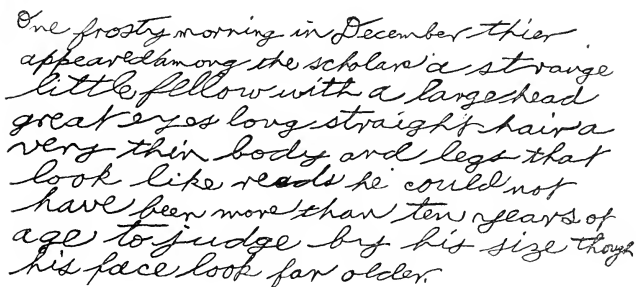 One frosty morning in December thier
appeared among the scholars a strange
little fellow with a large head
great eyes long straight hair a
very thin body and legs that
look like reeds he could not
have been more than ten years of
age to judge by his size though
his face look far older.